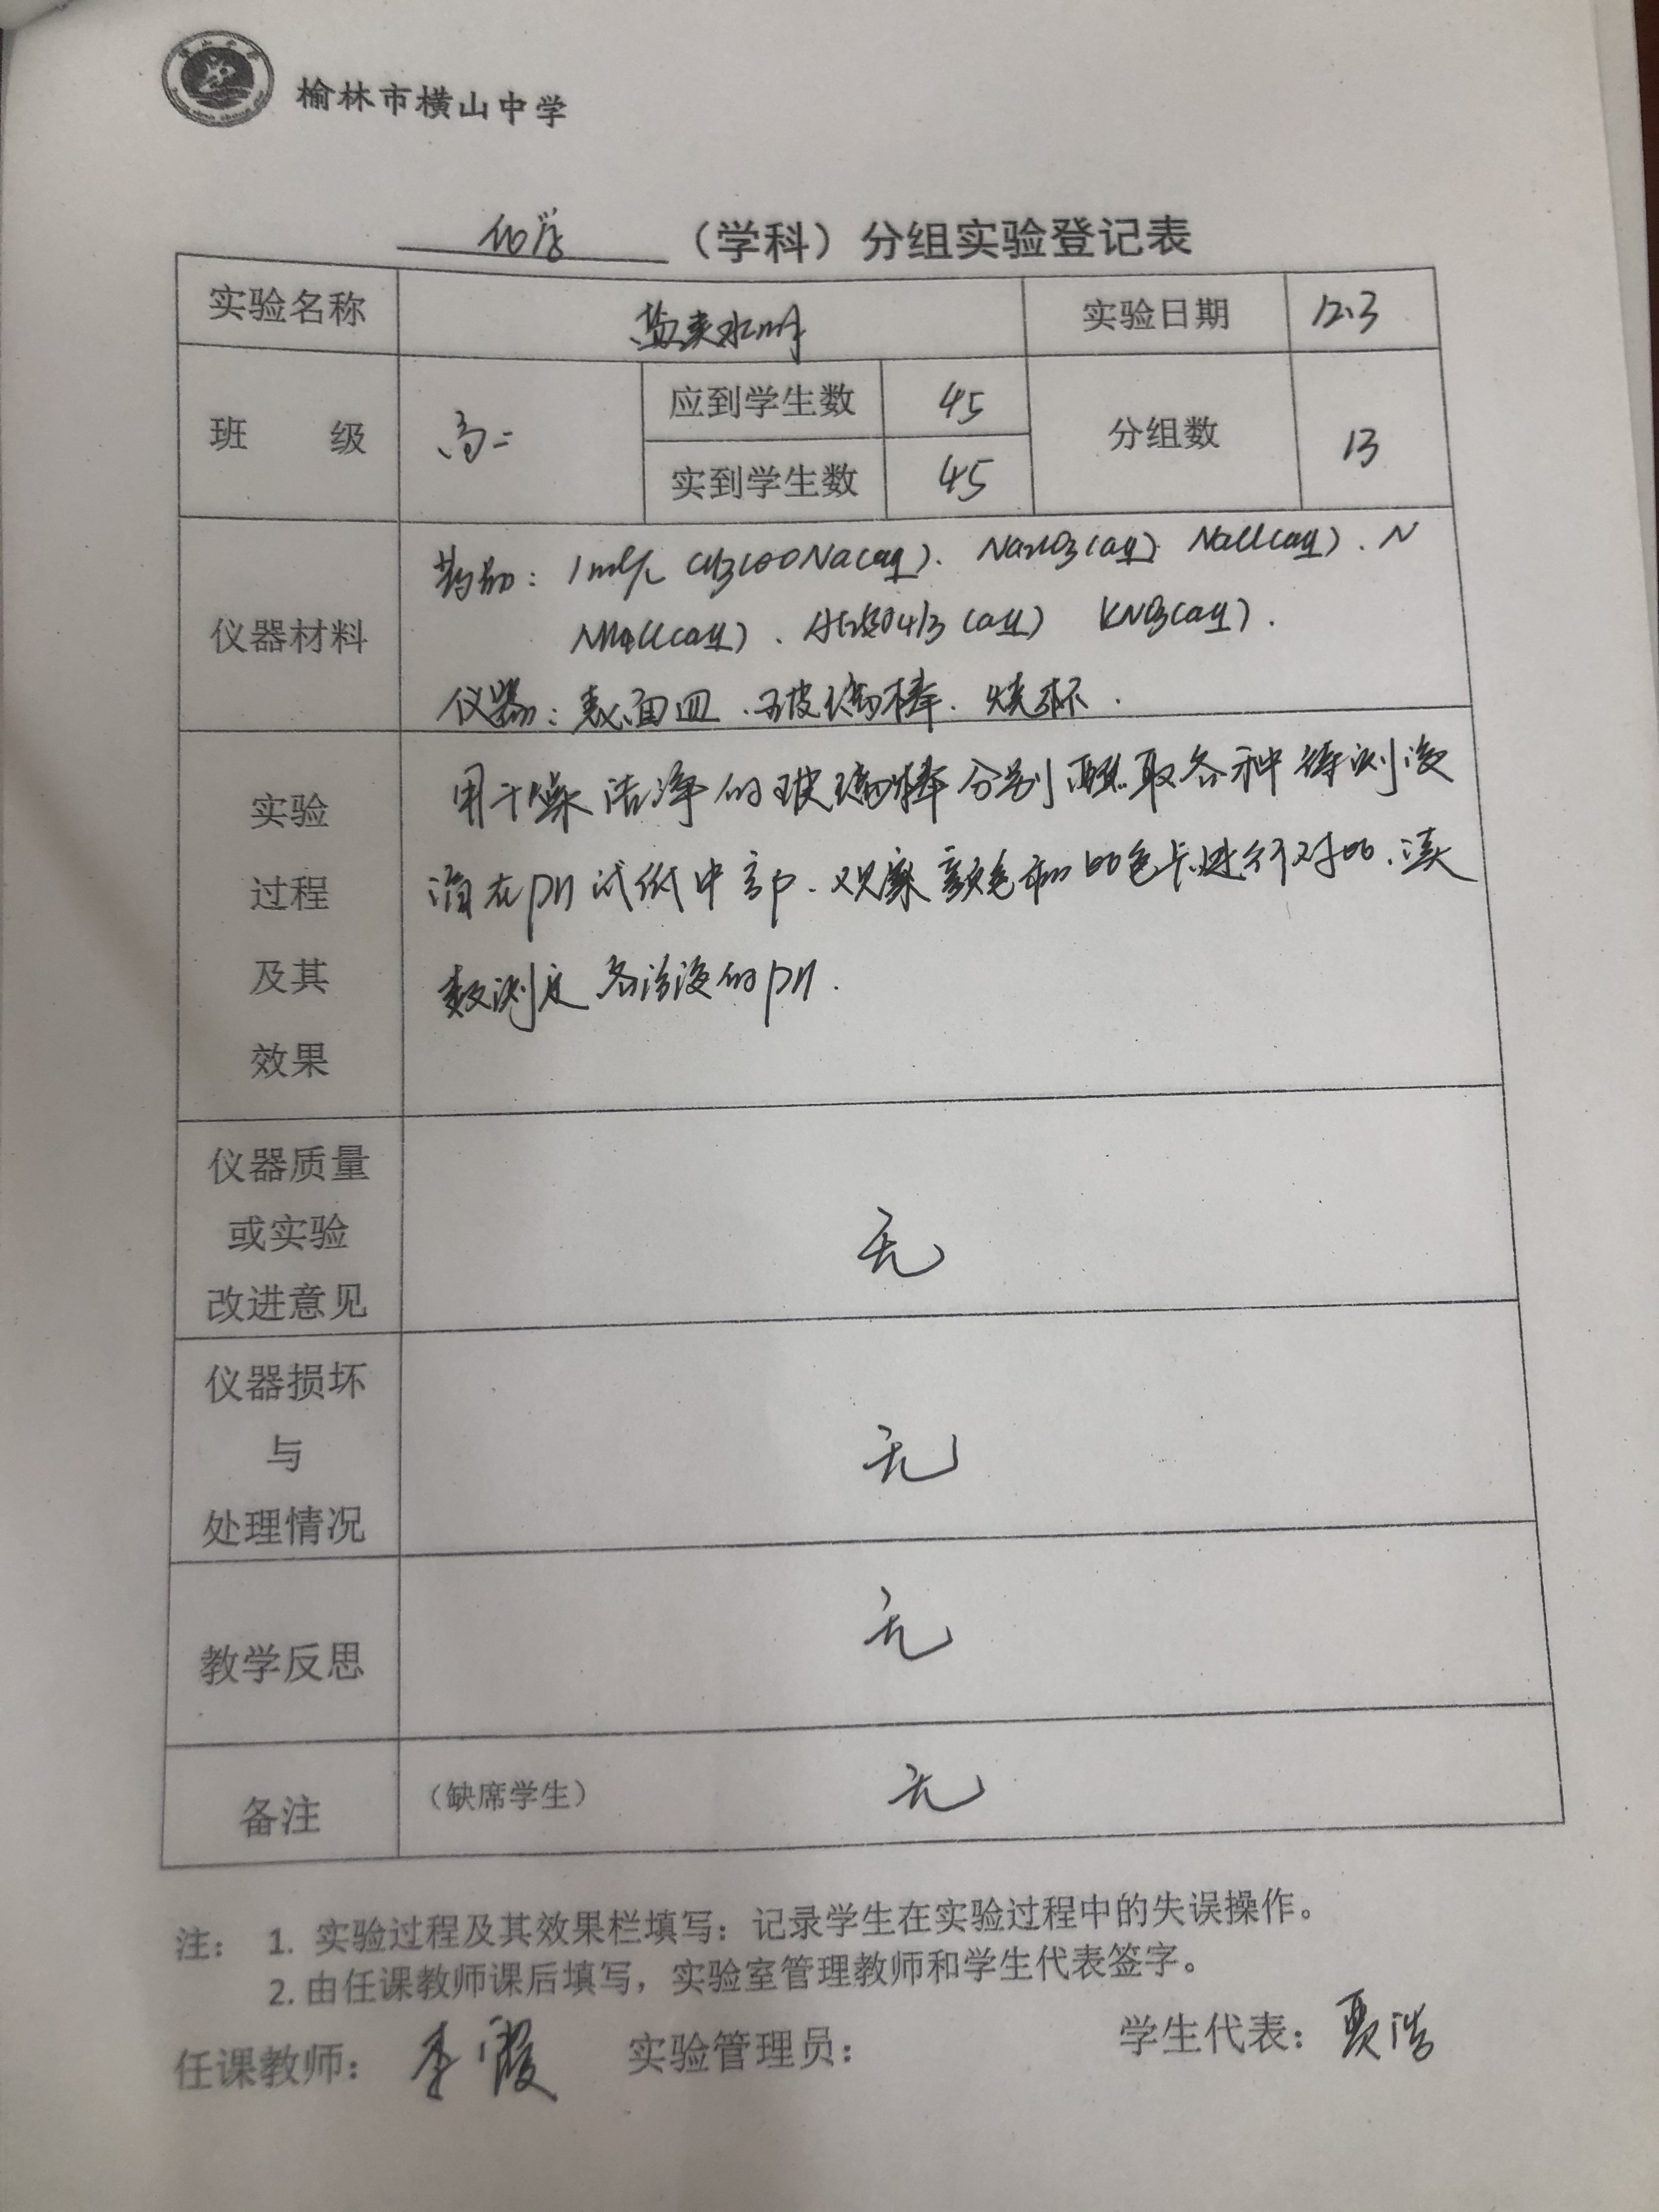 榆林市横山中学
化学 （学科）分组实验登记表
实验名称 盐类水解 实验日期 12.3
班 级 高二 应到学生数 45 分组数 13
实到学生数 45
仪器材料
药品：1mol/L CH3COONa(aq)、Na2CO3(aq) NaCl(aq)、N
NH4Cl(aq)、Al2(SO4)3(aq) KNO3(aq).
仪器：表面皿、玻璃棒、烧杯.
实验
过程
及其
效果
用干燥洁净的玻璃棒分别蘸取各种待测液
滴在pH试纸中部.观察颜色和比色卡进行对比,读
数测定各溶液的pH.
仪器质量
或实验
改进意见
无
仪器损坏
与
处理情况
无
教学反思 无
备注 （缺席学生） 无
注： 1. 实验过程及其效果栏填写：记录学生在实验过程中的失误操作。
2. 由任课教师课后填写，实验室管理教师和学生代表签字。
任课教师： 李霞 实验管理员： 学生代表： 贾浩